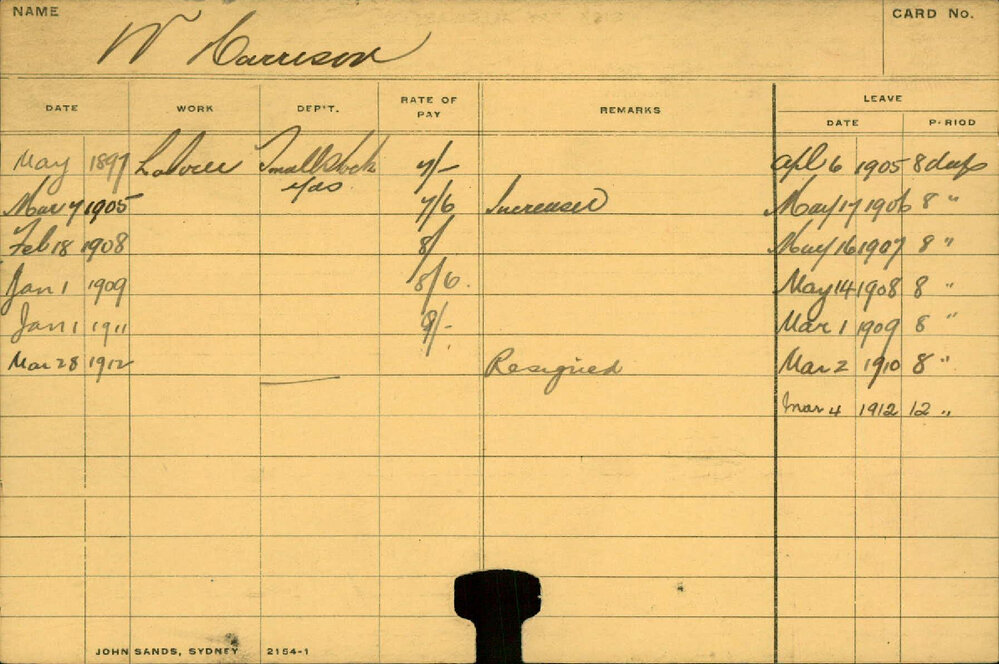 NAME
W Harrison
CARD No.
DATE WORK DEP'T. RATE OF PAY REMARKS LEAVE
DATE P-RIOD
May 1897 Labourer Smallstock 7/- Apl 6 1905 8 days
yds
Mar 7 1905 7/6 Increased May 17 1906 8 "
Feb 18 1908 8/ May 16 1907 8 "
Jan 1 1909 8/6 May 14 1908 8 "
Jan 1 1911 9/- Mar 1 1909 8 "
Mar 28 1912 Resigned Mar 2 1910 8 "
Mar 4 1912 12 "
JOHN SANDS, SYDNEY 2154-1